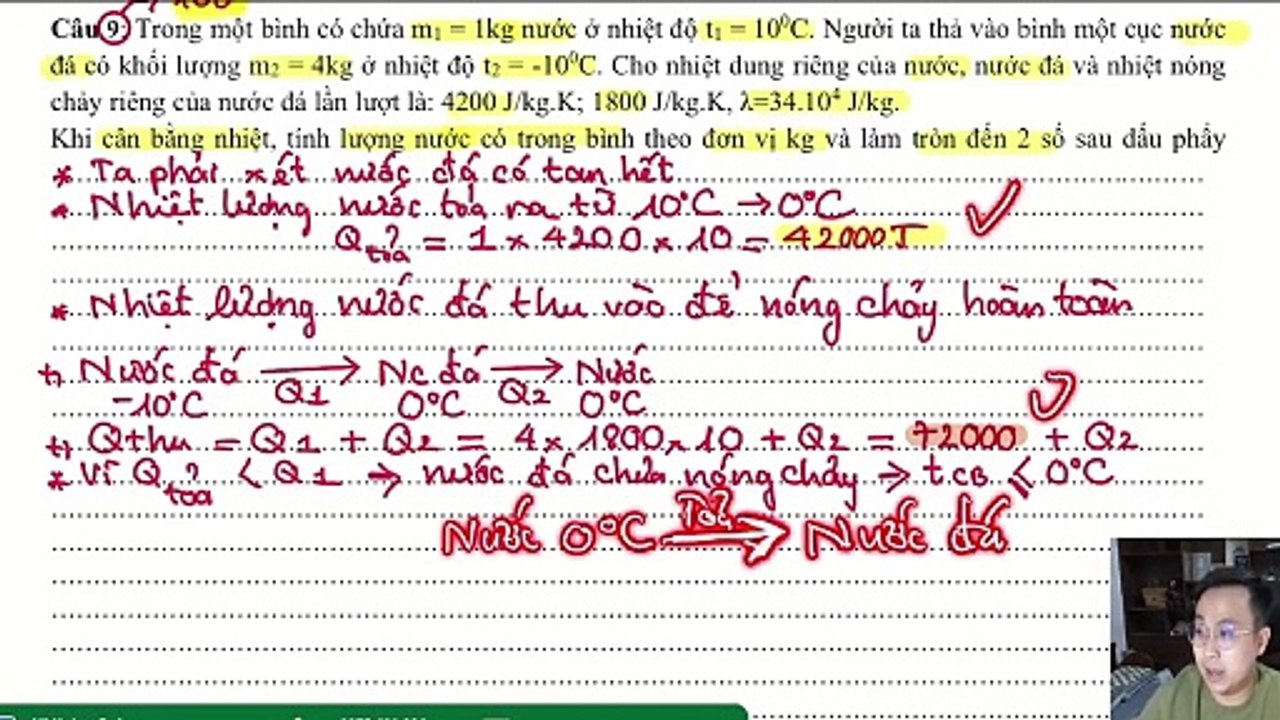 Câu 9: Trong một bình có chứa m₁ = 1kg nước ở nhiệt độ t₁ = 10⁰C. Người ta thả vào bình một cục nước
đá có khối lượng m₂ = 4kg ở nhiệt độ t₂ = -10⁰C. Cho nhiệt dung riêng của nước, nước đá và nhiệt nóng
chảy riêng của nước đá lần lượt là: 4200 J/kg.K; 1800 J/kg.K, λ=34.10⁴ J/kg.
Khi cân bằng nhiệt, tính lượng nước có trong bình theo đơn vị kg và làm tròn đến 2 số sau dấu phẩy
* Ta phải xét nước đá có tan hết
* Nhiệt lượng nước toả ra từ 10°C → 0°C
Q toả = 1 × 4200 × 10 = 42000J
* Nhiệt lượng nước đá thu vào để nóng chảy hoàn toàn
+) Nước đá → Nc đá → Nước
Q1 Q2
-10°C 0°C 0°C
+) Qthu = Q1 + Q2 = 4 × 1800 × 10 + Q2 = 72000 + Q2
* Vì Q toả < Q1 → nước đá chưa nóng chảy → tCB ≤ 0°C
Nước 0°C Toả → Nước đá